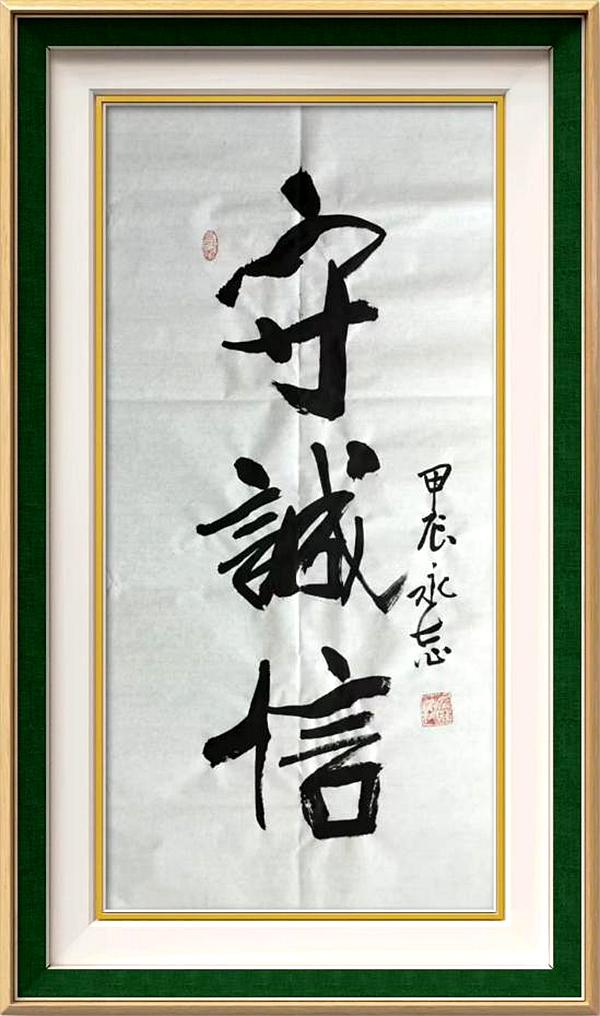 守誠信
甲辰永志